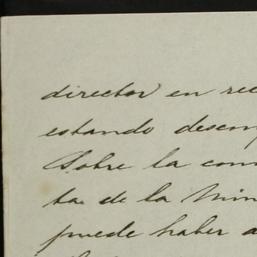 director en rec
estando desem
Sobre la com
ta de la Min
puede haber a